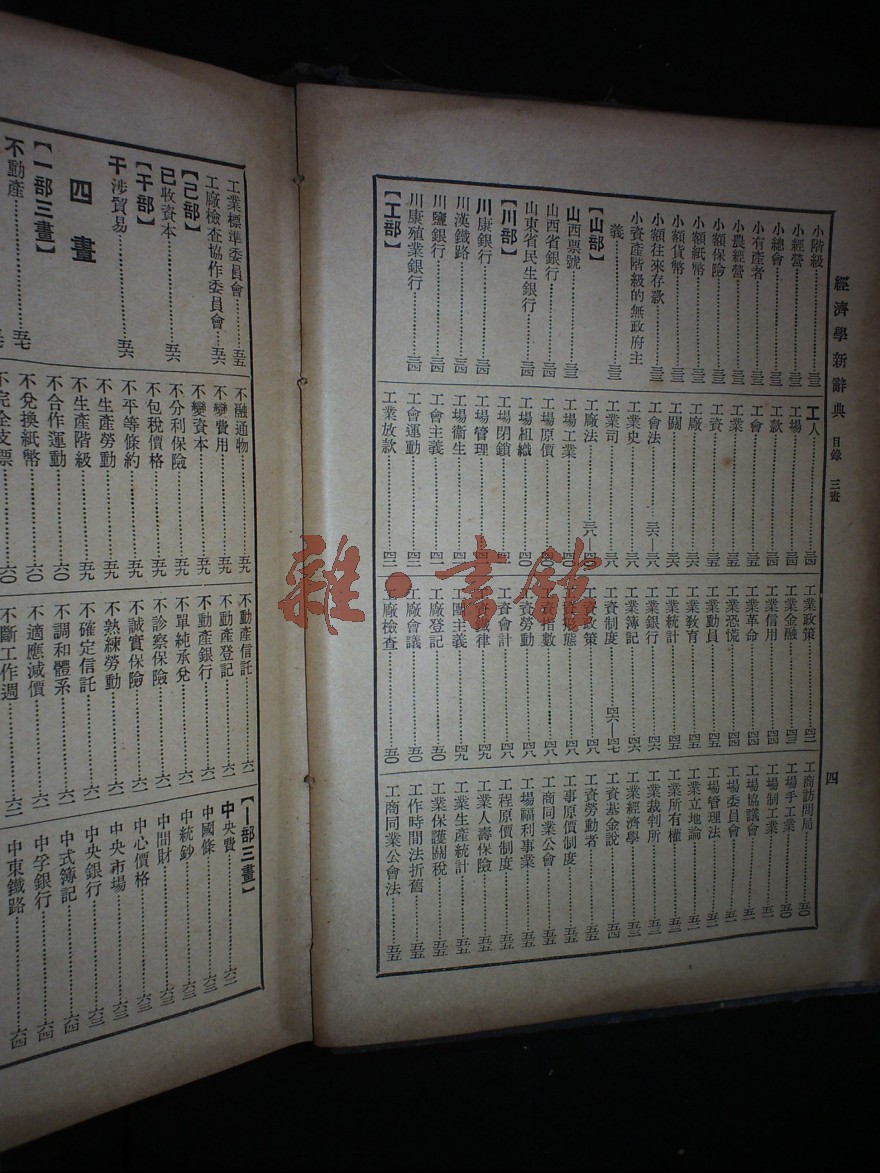 經濟學新辭典 目錄 三畫
四
小階級……
小經營……
小總會……
小有產者……
小農經營……
小額保險……
小額紙幣……
小額貨幣……
小額往來存款……
小資產階級的無政府主
義……
【山部】
山西票號……
山西省銀行……
山東省民生銀行……
【川部】
川康銀行……
川漢鐵路……
川鹽銀行……
川康殖業銀行……
【工部】
工人……
工場……
工款……
工會……
工業……
工資……
工廠……
工關……
工會法……
工業史……
工業司……
工廠法……
工場工業……
工場原價……
工場組織……
工場閉鎖……
工場管理……
工場衞生……
工會主義……
工會運動……
工業放款……
工業政策……
工業金融……
工業信用……
工業革命……
工業恐慌……
工業動員……
工業教育……
工業統計……
工業銀行……
工業簿記……
工資制度……四六—四七
工資政策……四八
工資勞動……四八
工資會計……四八
工團主義……四九
工廠登記……五〇
工廠會議……五〇
工廠檢查……五〇
工商訪問局……五〇
工場手工業……五〇
工場制工業……五一
工場協議會……五一
工場委員會……五一
工場管理法……
工業立地論……
工業所有權……
工業裁判所……
工業經濟學……
工資基金說……
工資勞動者……
工事原價制度……五五
工商同業公會……五五
工場福利事業……五五
工程原價制度……五五
工業人壽保險……五五
工業生產統計……五五
工業保護關稅……五五
工作時間法折舊……五五
工商同業公會法……五五
工業標準委員會……五五
工廠檢查協作委員會……五六
【己部】
已收資本……五六
【干部】
干涉貿易……五六
四 畫
【一部三畫】
不動產……五七
不融通物……五九
不變費用……五九
不變資本……五九
不分利保險……五九
不包稅價格……五九
不平等條約……五九
不生產勞動……五九
不生產階級……五九
不合作運動……六〇
不兌換紙幣……六〇
不完全支票……六〇
不動產信託……六一
不動產登記……六一
不動產銀行……六一
不單純承兌……六一
不診察保險……六一
不誠實保險……六一
不熟練勞動……六一
不確定信託……六一
不調和體系……六一
不適應減價……六一
不斷工作週……六二
【丨部三畫】
中央費……六二
中國條……六三
中統鈔……六三
中間財……六三
中心價格……六三
中央市場……六三
中央銀行……六三
中式簿記……六四
中孚銀行……六四
中東鐵路……六四
雜·書館